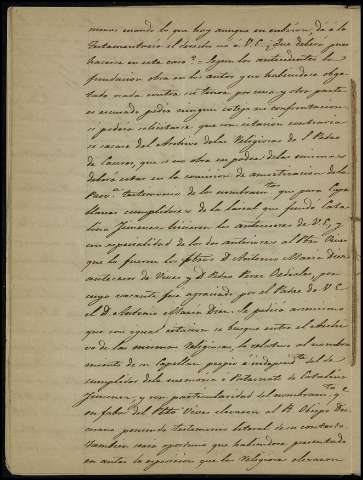 menos cuando lo que hoy aunque en embrion, dá á la
Testamentaria el derecho no á V. E. ¿Que deberá pues
hacerse en este caso? = Segun los antecedentes la
fundacion obra en los autos y no habiendose obge-
tado nada contra si tercia por una y otra parte
es escusado pedir ningun cotejo ni confrontacion
si podria solicitarse que con citacion contraria
se sacase del Archivo de las Religiosas de S. Pedro
de Cuenca, que si no obra en poder de las mismas
deberá estar en la comision de amortizacion de la
Prov.ª testimonio de los nombram.tos que para Cape
llanes cumplidores de la local que fundó Cata
lina Jimenez hicieron los antecesores de V. E., y
con especialidad de los dos anteriores al Pbro Vives
que lo fueron los Pbros D. Antonio Maria Diaz
antecesor de Vives y D. Pedro Perez por
cuya vacante fue agraciado por el Padre de V. E.
el D. Antonio Maria Diaz. Se pediria asimismo
que con igual citacion se busque entre el Archi
vo de las mismas Religiosas, lo relativo al nombra
miento de su Capellan propio é independ.te del de
cumplidor de la memoria ó Patronato de Catalina
Jimenez, y con particularidad del nombram.to q.e
en favor del Pbro Vives elevaron al R. Obispo Dio
cesano poniendo testimonio literal de su contesto.
Tambien seria oportuno que habiendose presentado
en autos la esposicion que las Religiosas elevaron